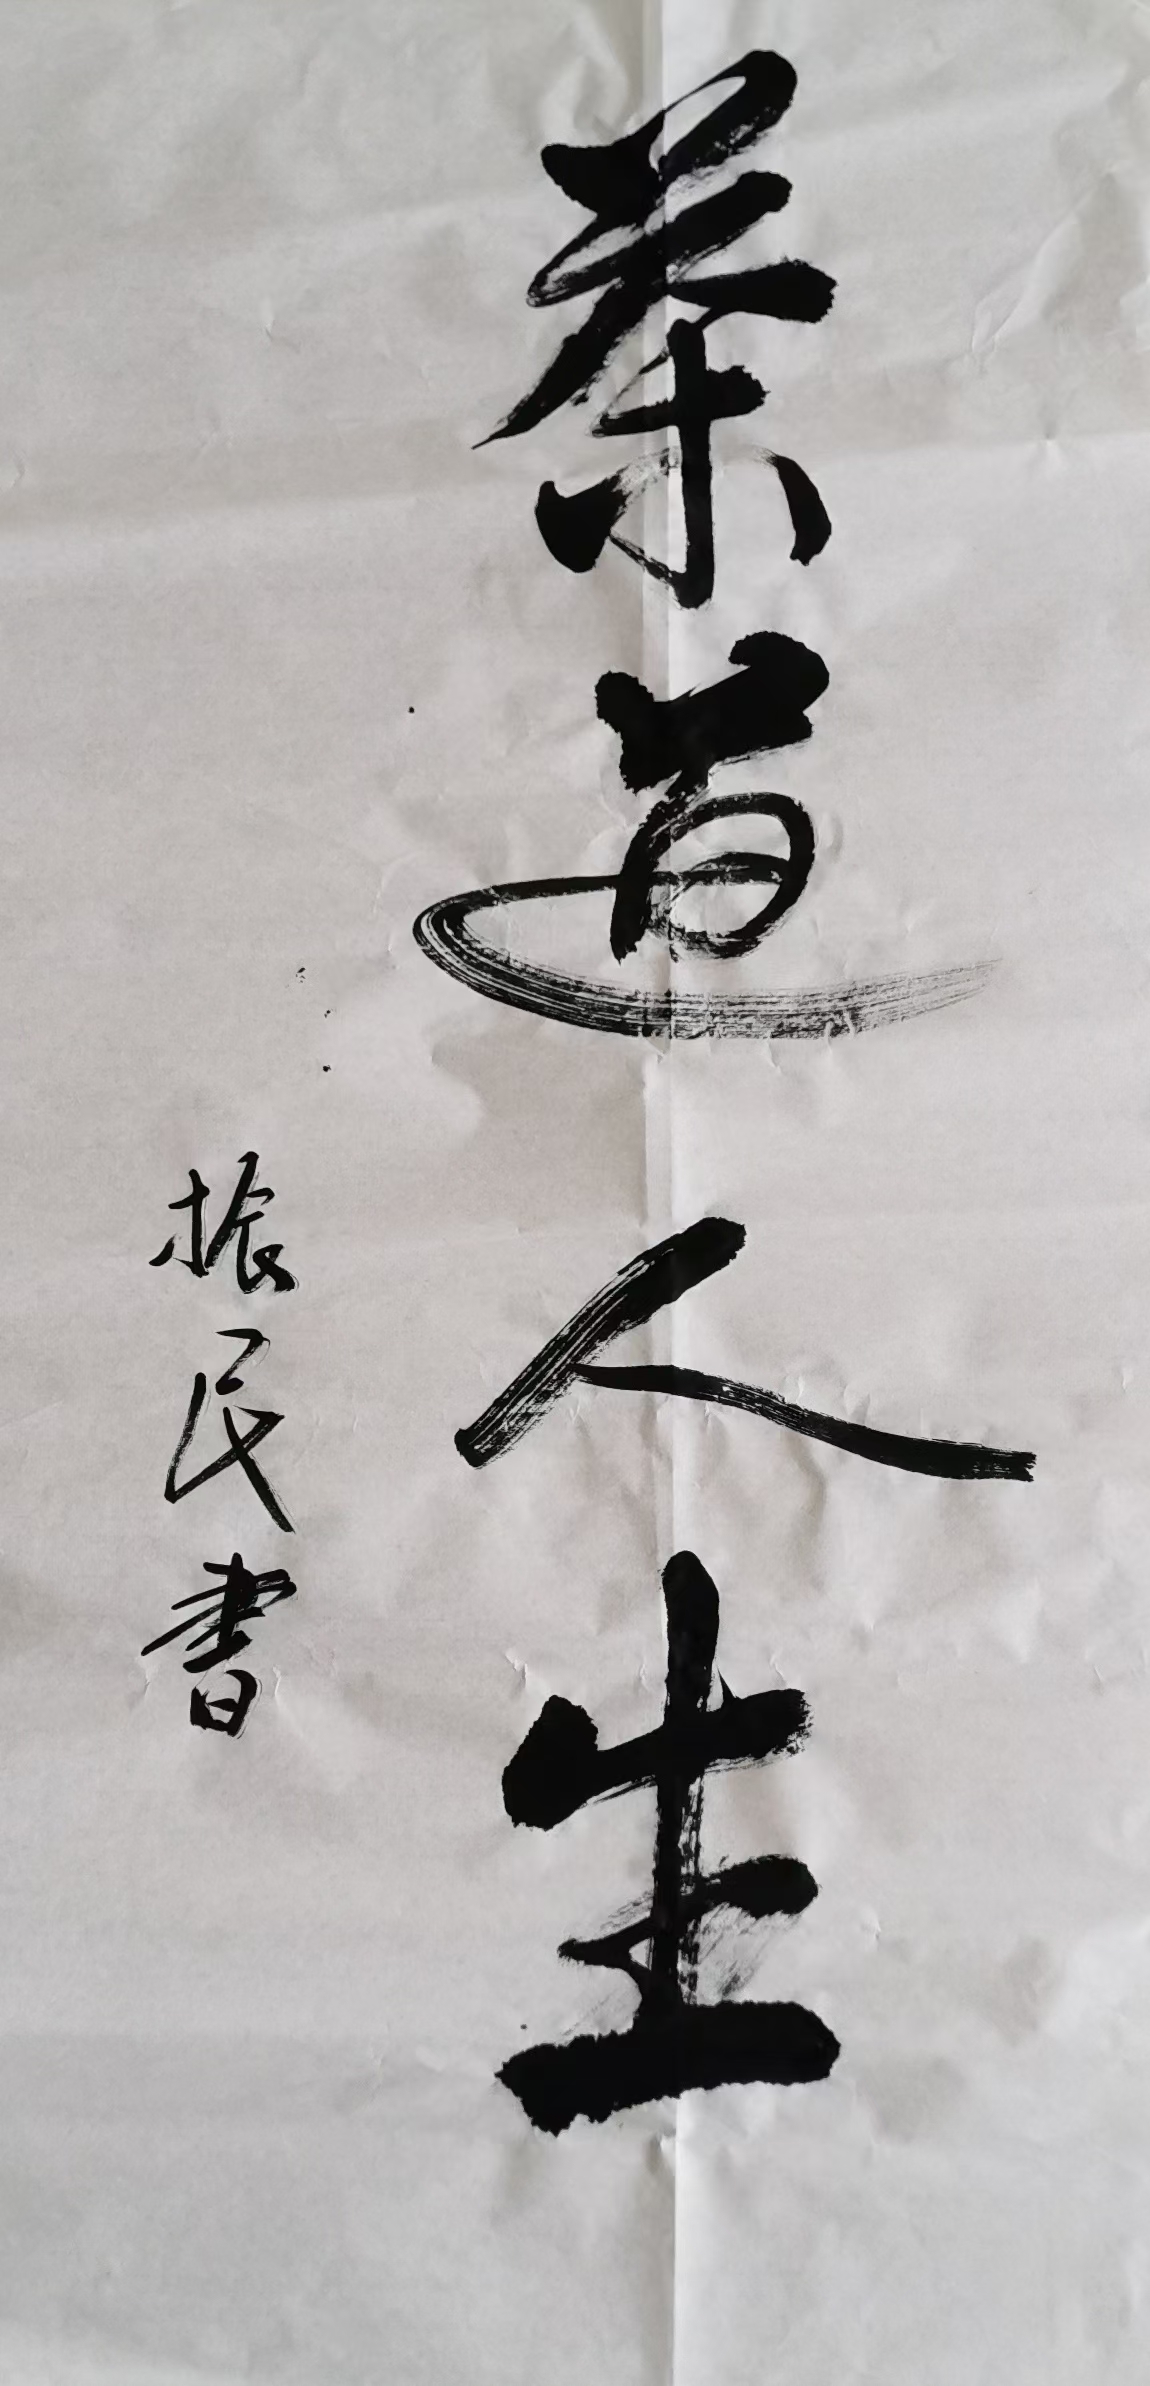 茶道人生
振民書